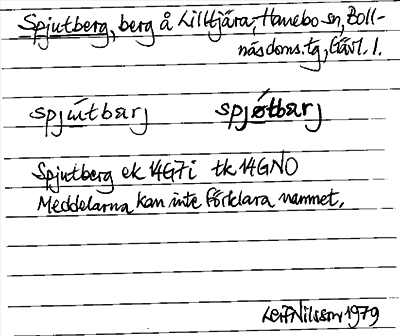 Spjutberg, berg å Lilltjära, Hanebo sn, Boll-
näs doms. tg, Gävl. l.
spjútbarj spjøtbarj
Spjutberg ek 14G7i tk 14GNO
Meddelarna kan inte förklara namnet.
Leif Nilsson 1979